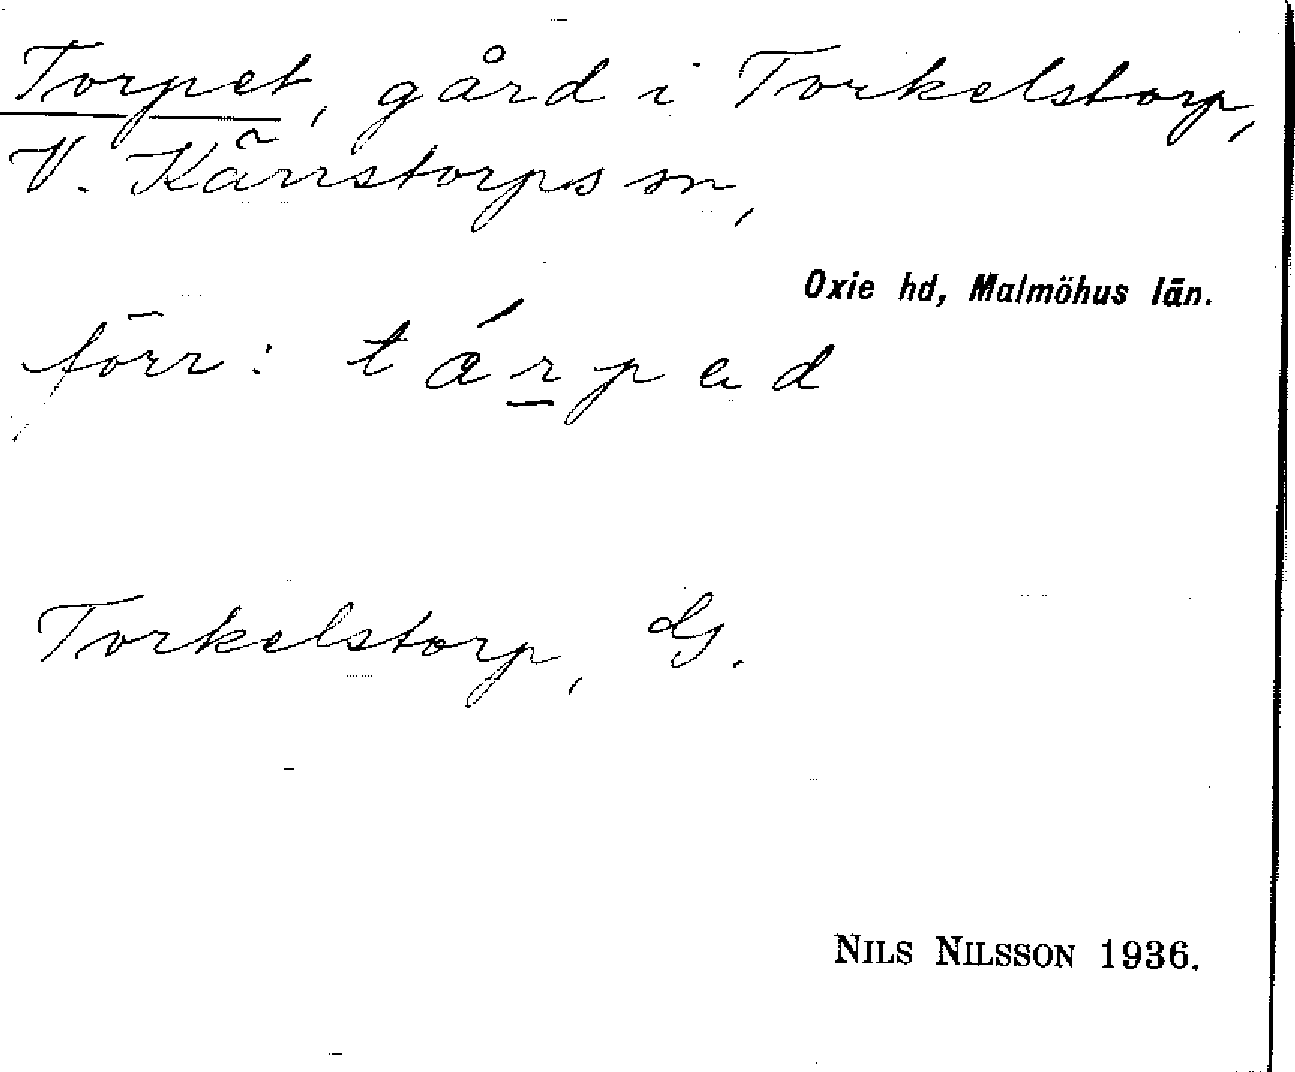 Torpet, gård i Torkelstorp,
V. Kärrstorps sn,
Oxie hd, Malmöhus län.
förr: tárpad
Torkelstorp, G.
NILS NILSSON 1936.